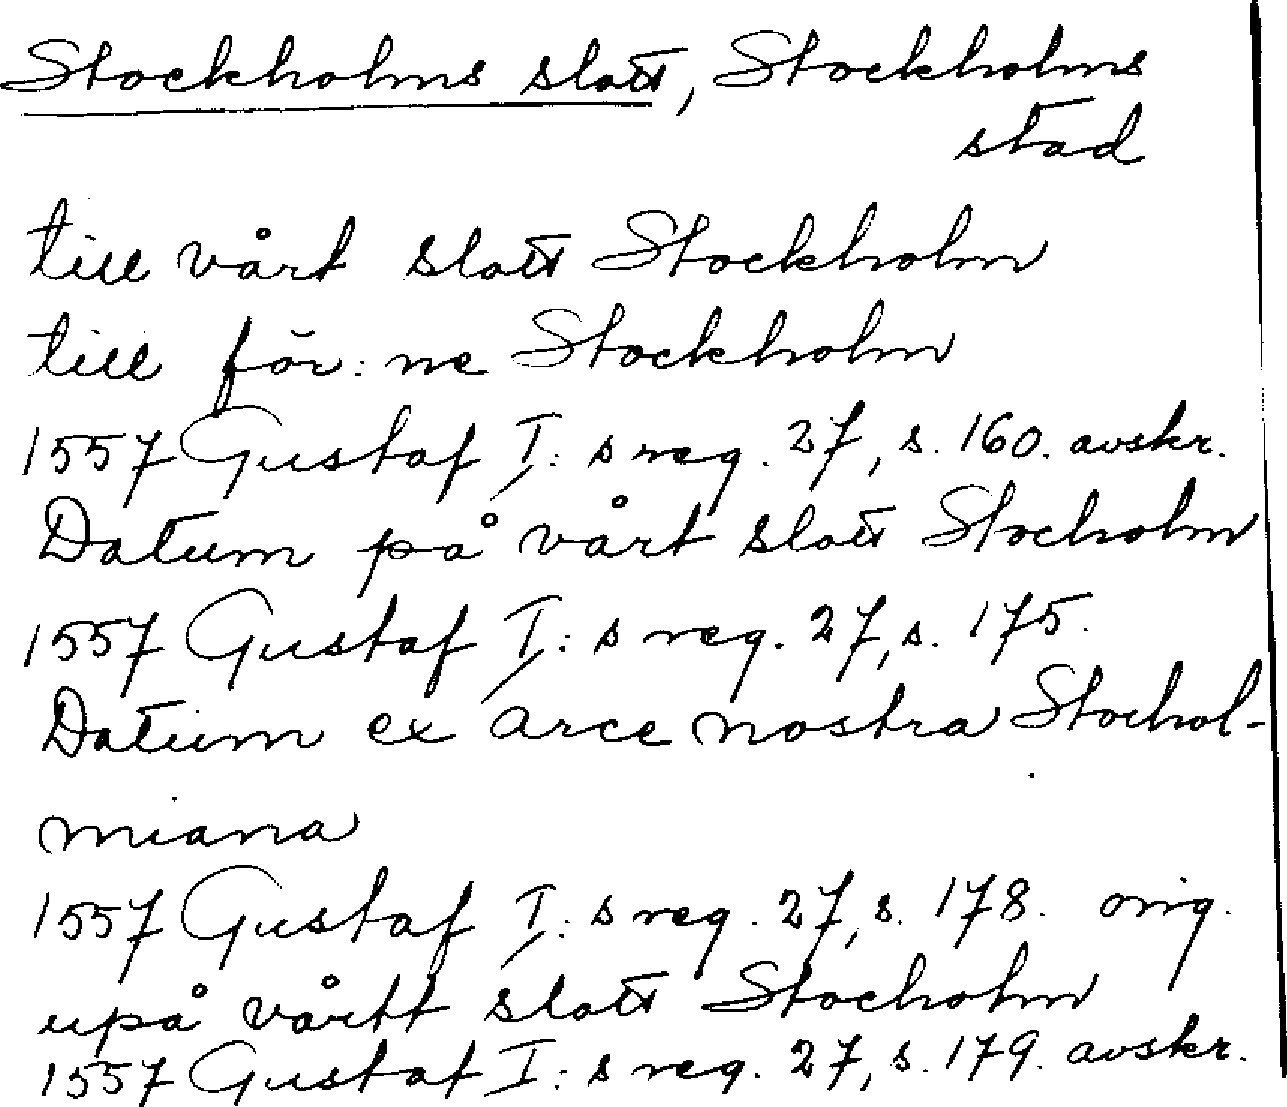 Stockholms slott, Stockholms
stad
till vårt slott Stockholm
till för:ne Stockholm
1557 Gustaf I:s reg. 27, s. 160. avskr.
Datum på vårt slott Stocholm
1557 Gustaf I:s reg. 27, s. 175.
Datum ex arce nostra Stochol-
miana
1557 Gustaf I:s reg. 27, s. 178. orig.
upå vårtt slott Stocholm
1557 Gustaf I:s reg. 27, s. 179. avskr.